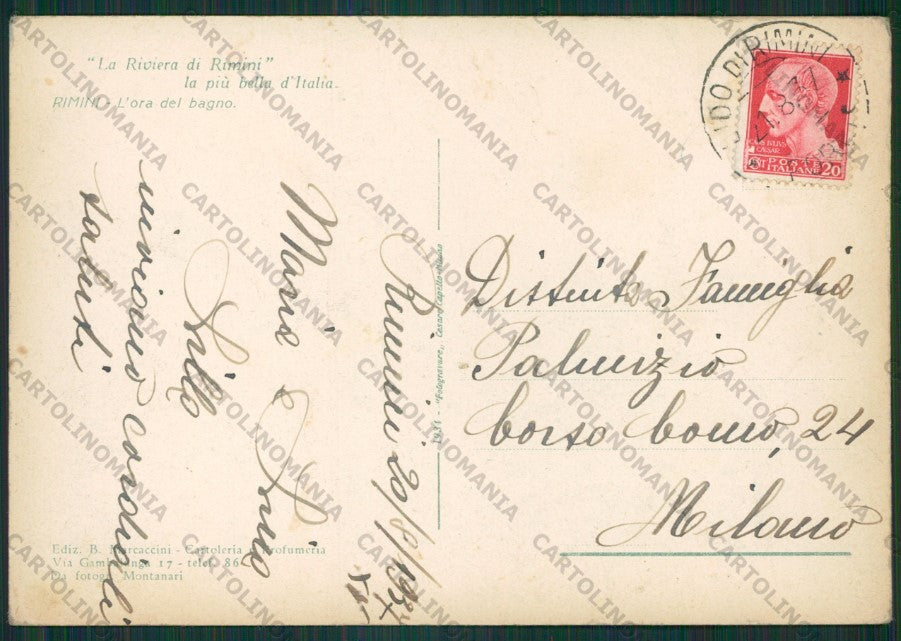 "La Riviera di Rimini"
la più bella d'Italia.
RIMINI - L'ora del bagno.
LIDO DI RIMINI
POSTE
ITALIANE 20
Distinta Famiglia
Palmizio
Corso Como, 24
Milano
Rimini 20/8/1937
XV
Maria e
inviano cordiali
saluti
1931 - "Fotogravure" Cesare Capello - Milano
Ediz. B. Marcaccini - Cartoleria e Profumeria
Via Gambalunga 17 - telef. 86
Da fotogr. Montanari
CARTOLINOMANIA